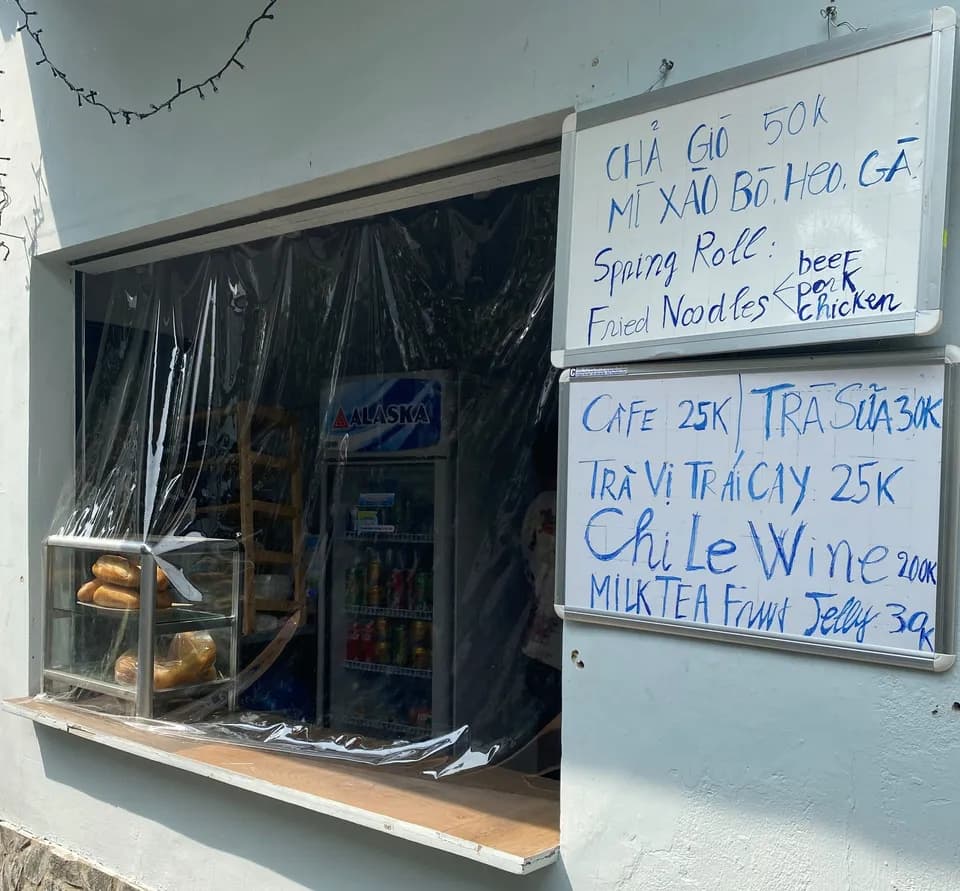 CHẢ GIÒ 50K
MÌ XÀO BÒ. HEO. GÀ
Spring Roll:
Fried Noodles < beef
pork
chicken
CAFE 25K / TRÀ SỮA 30K
TRÀ VỊ TRÁI CÂY 25K
Chi Le Wine 200K
MILK TEA Fruit Jelly 30K
ALASKA